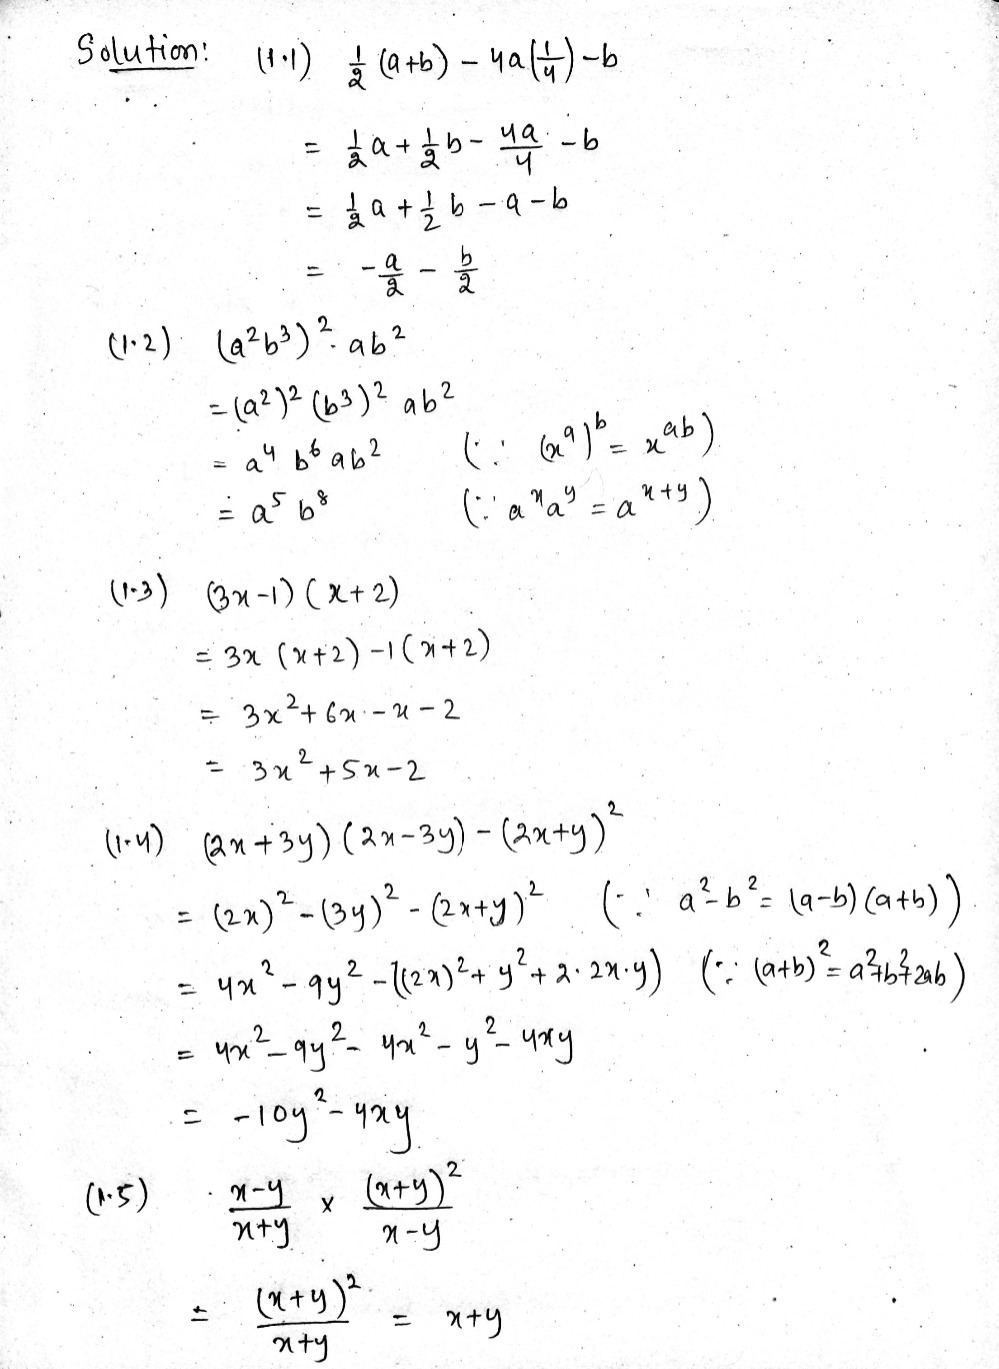 Solution: (1.1) 1/2 (a+b) - 4a(1/4) - b
= 1/2 a + 1/2 b - 4a/4 - b
= 1/2 a + 1/2 b - a - b
= - a/2 - b/2
(1.2) (a²b³)². ab²
= (a²)² (b³)² ab²
= a⁴ b⁶ ab² (∵ (x^a)^b = x^ab)
= a⁵ b⁸ (∵ a^x a^y = a^x+y)
(1.3) (3x-1) (x+2)
= 3x (x+2) -1(x+2)
= 3x² + 6x - x - 2
= 3x² + 5x - 2
(1.4) (2x+3y) (2x-3y) - (2x+y)²
= (2x)² - (3y)² - (2x+y)² (∵ a²-b² = (a-b)(a+b))
= 4x² - 9y² - ((2x)² + y² + 2.2x.y) (∵ (a+b)² = a²+b²+2ab)
= 4x² - 9y² - 4x² - y² - 4xy
= -10y² - 4xy
(1.5) x-y/x+y × (x+y)²/x-y
= (x+y)²/x+y = x+y